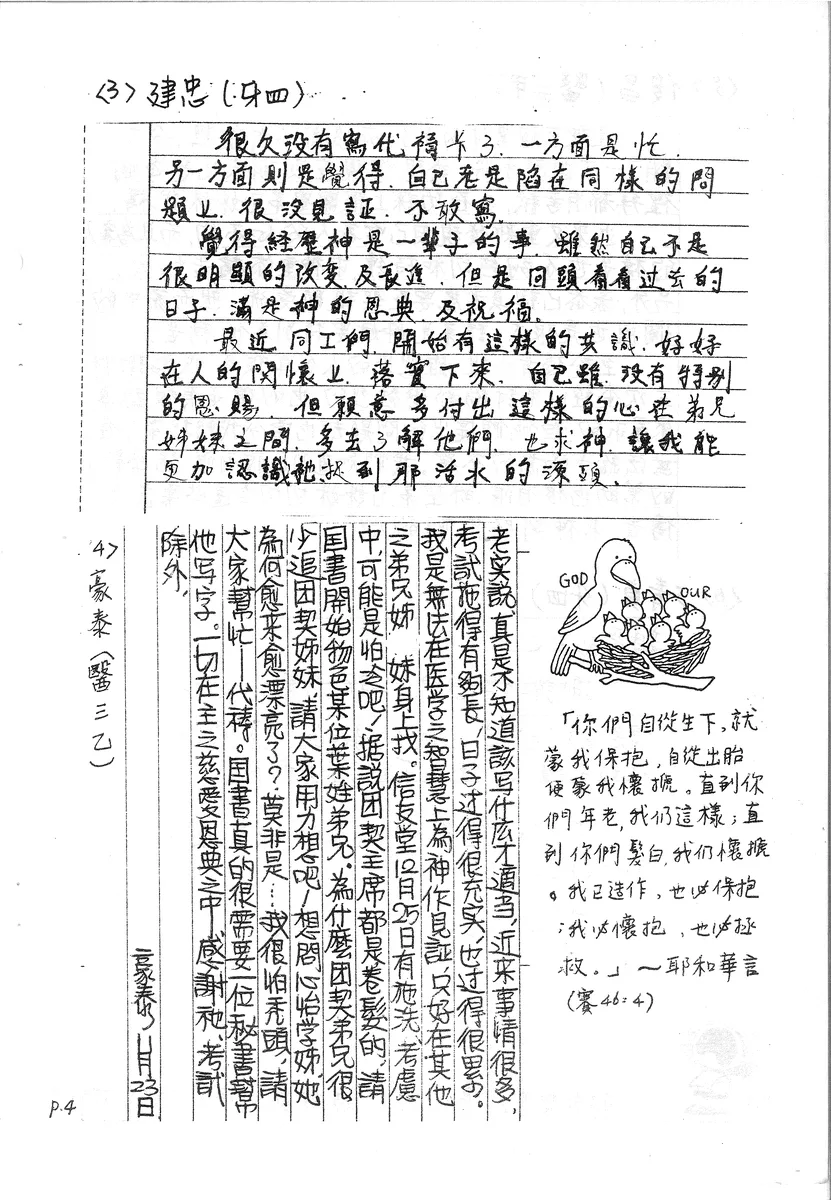 〈3〉建忠(牙四)
很久沒有寫代禱卡了.一方面是忙.
另一方面則是覺得.自己老是陷在同樣的問
題上.很沒見証.不敢寫.
覺得経歷神是一輩子的事.雖然自己不是
很明顯的改变.及長進.但是回頭看看过去的
日子.滿是神的恩典.及祝福.
最近同工們.開始有這樣的共識.好好
在人的関懷上.落實下來.自己雖.沒有特别
的恩賜.但願意多付出這樣的心在弟兄
姊妹之間.多去了解他們.也求神.讓我能
更加認識祂找到那活水的源頭.
4〉豪泰(醫三乙)
老实說真是不知道該写什広才適当,近来事情很多,
考試拖得有夠長,日子过得很充实,也过得很累。
我是無法在医学之智慧上為神作見証,只好在其他
之弟兄姊 妹身上找。信友堂12月25日有施洗,考慮
中,可能是怕忘吧!据説团契主席都是卷髮的,請
国書開始物色某位葉姓弟兄。為什麼团契弟兄很
少追团契姊妹,請大家用力想吧!想問心怡学姊,她
為何愈来愈漂亮了?莫非是…我很怕秃頭,請
大家幫忙—代禱。国書真的很需要一位秘書幫
他写字。一切在主之慈愛恩典之中,感謝祂,考試
除外,
豪泰 11月23日
GOD
OUR
「你們自從生下,就
蒙我保抱,自從出胎
便蒙我懷搋。直到你
們年老,我仍這樣;直
到你們髮白,我仍懷搋
。我已造作,也必保抱
;我必懷抱,也必拯
救。」～耶和華言
(賽46:4)
P.4